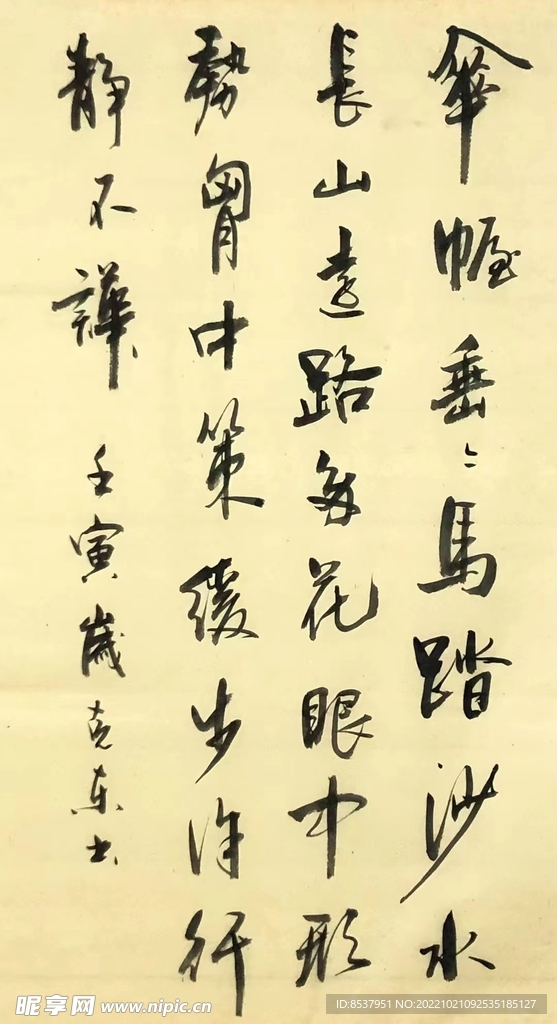 傘幄垂〻馬踏沙水
長山遠路多花眼中形
勢胷中策緩步徐行
靜不譁
壬寅歲克東書
昵享网 www.nipic.cn
ID:8537951 NO:20221021092535185127